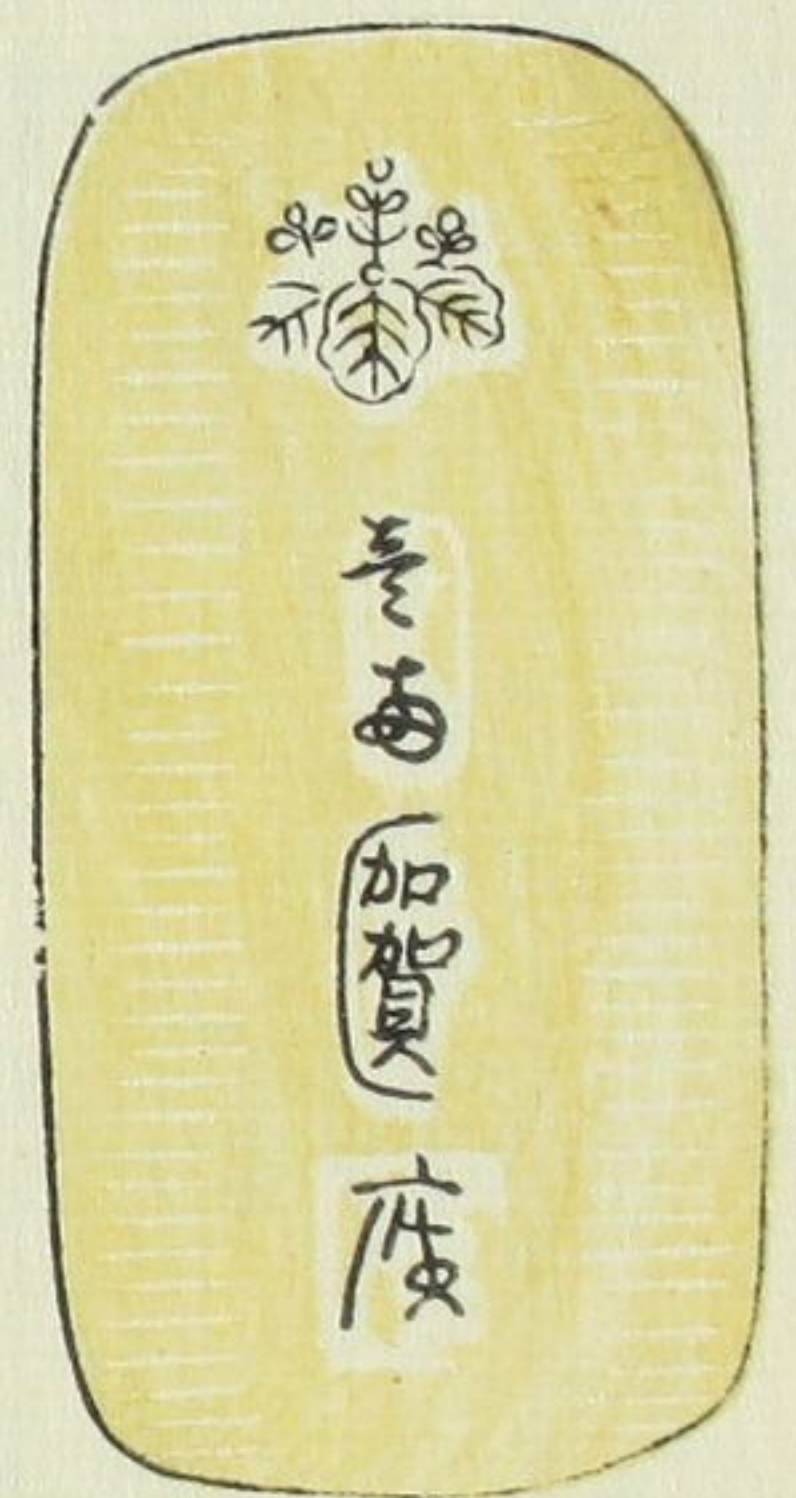 壹両
加賀